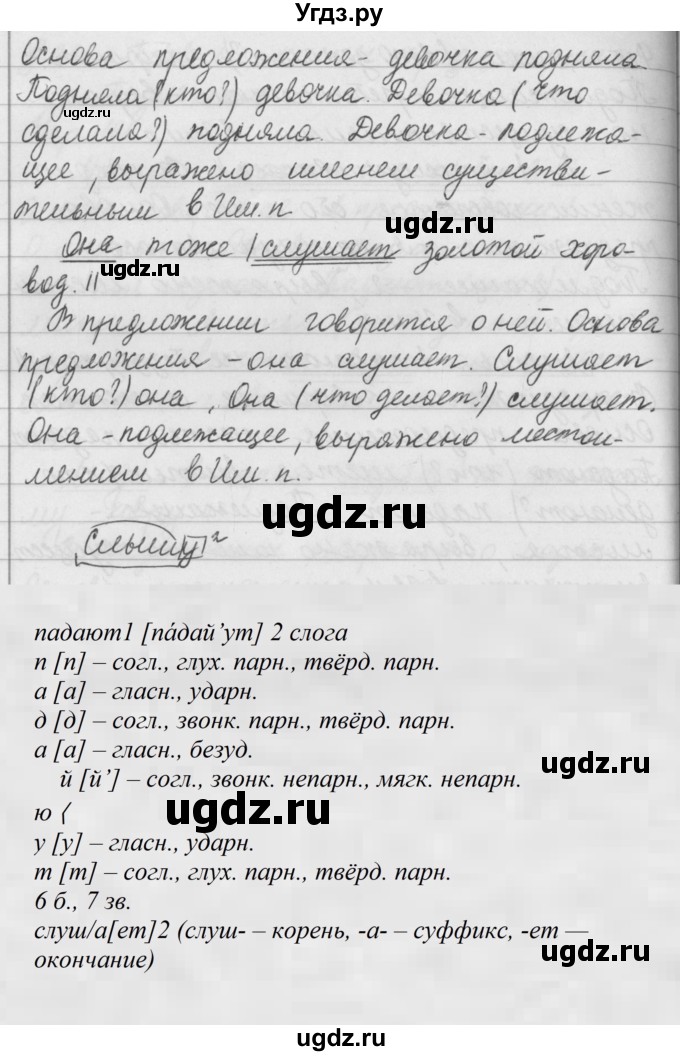 Угдз.ру
Основа предложения - девочка подняла.
Подняла (кто?) девочка. Девочка (что
сделала?) подняла. Девочка - подлежа-
щее, выражено именем существи-
тельным в Им. п.
Она тоже | слушает золотой хоро-
вод. II
В предложении говорится о ней. Основа
предложения - она слушает. Слушает
(кто?) она, Она (что делает?) слушает.
Она - подлежащее, выражено местои-
мением в Им. п.
ugdz.ru
ugdz.ru
ugdz.ru
ugdz.ru
падают1 [па́дай’ут] 2 слога
п [п] – согл., глух. парн., твёрд. парн.
а [а] – гласн., ударн.
д [д] – согл., звонк. парн., твёрд. парн.
а [а] – гласн., безуд.
й [й’] – согл., звонк. непарн., мягк. непарн.
ю ⟨
у [у] – гласн., ударн.
т [т] – согл., глух. парн., твёрд. парн.
6 б., 7 зв.
слуш/а[ет]2 (слуш- – корень, -а- – суффикс, -ет —
окончание)
ugdz.ru
ugdz.ru
ugdz.ru
ugdz.ru
ugdz.ru